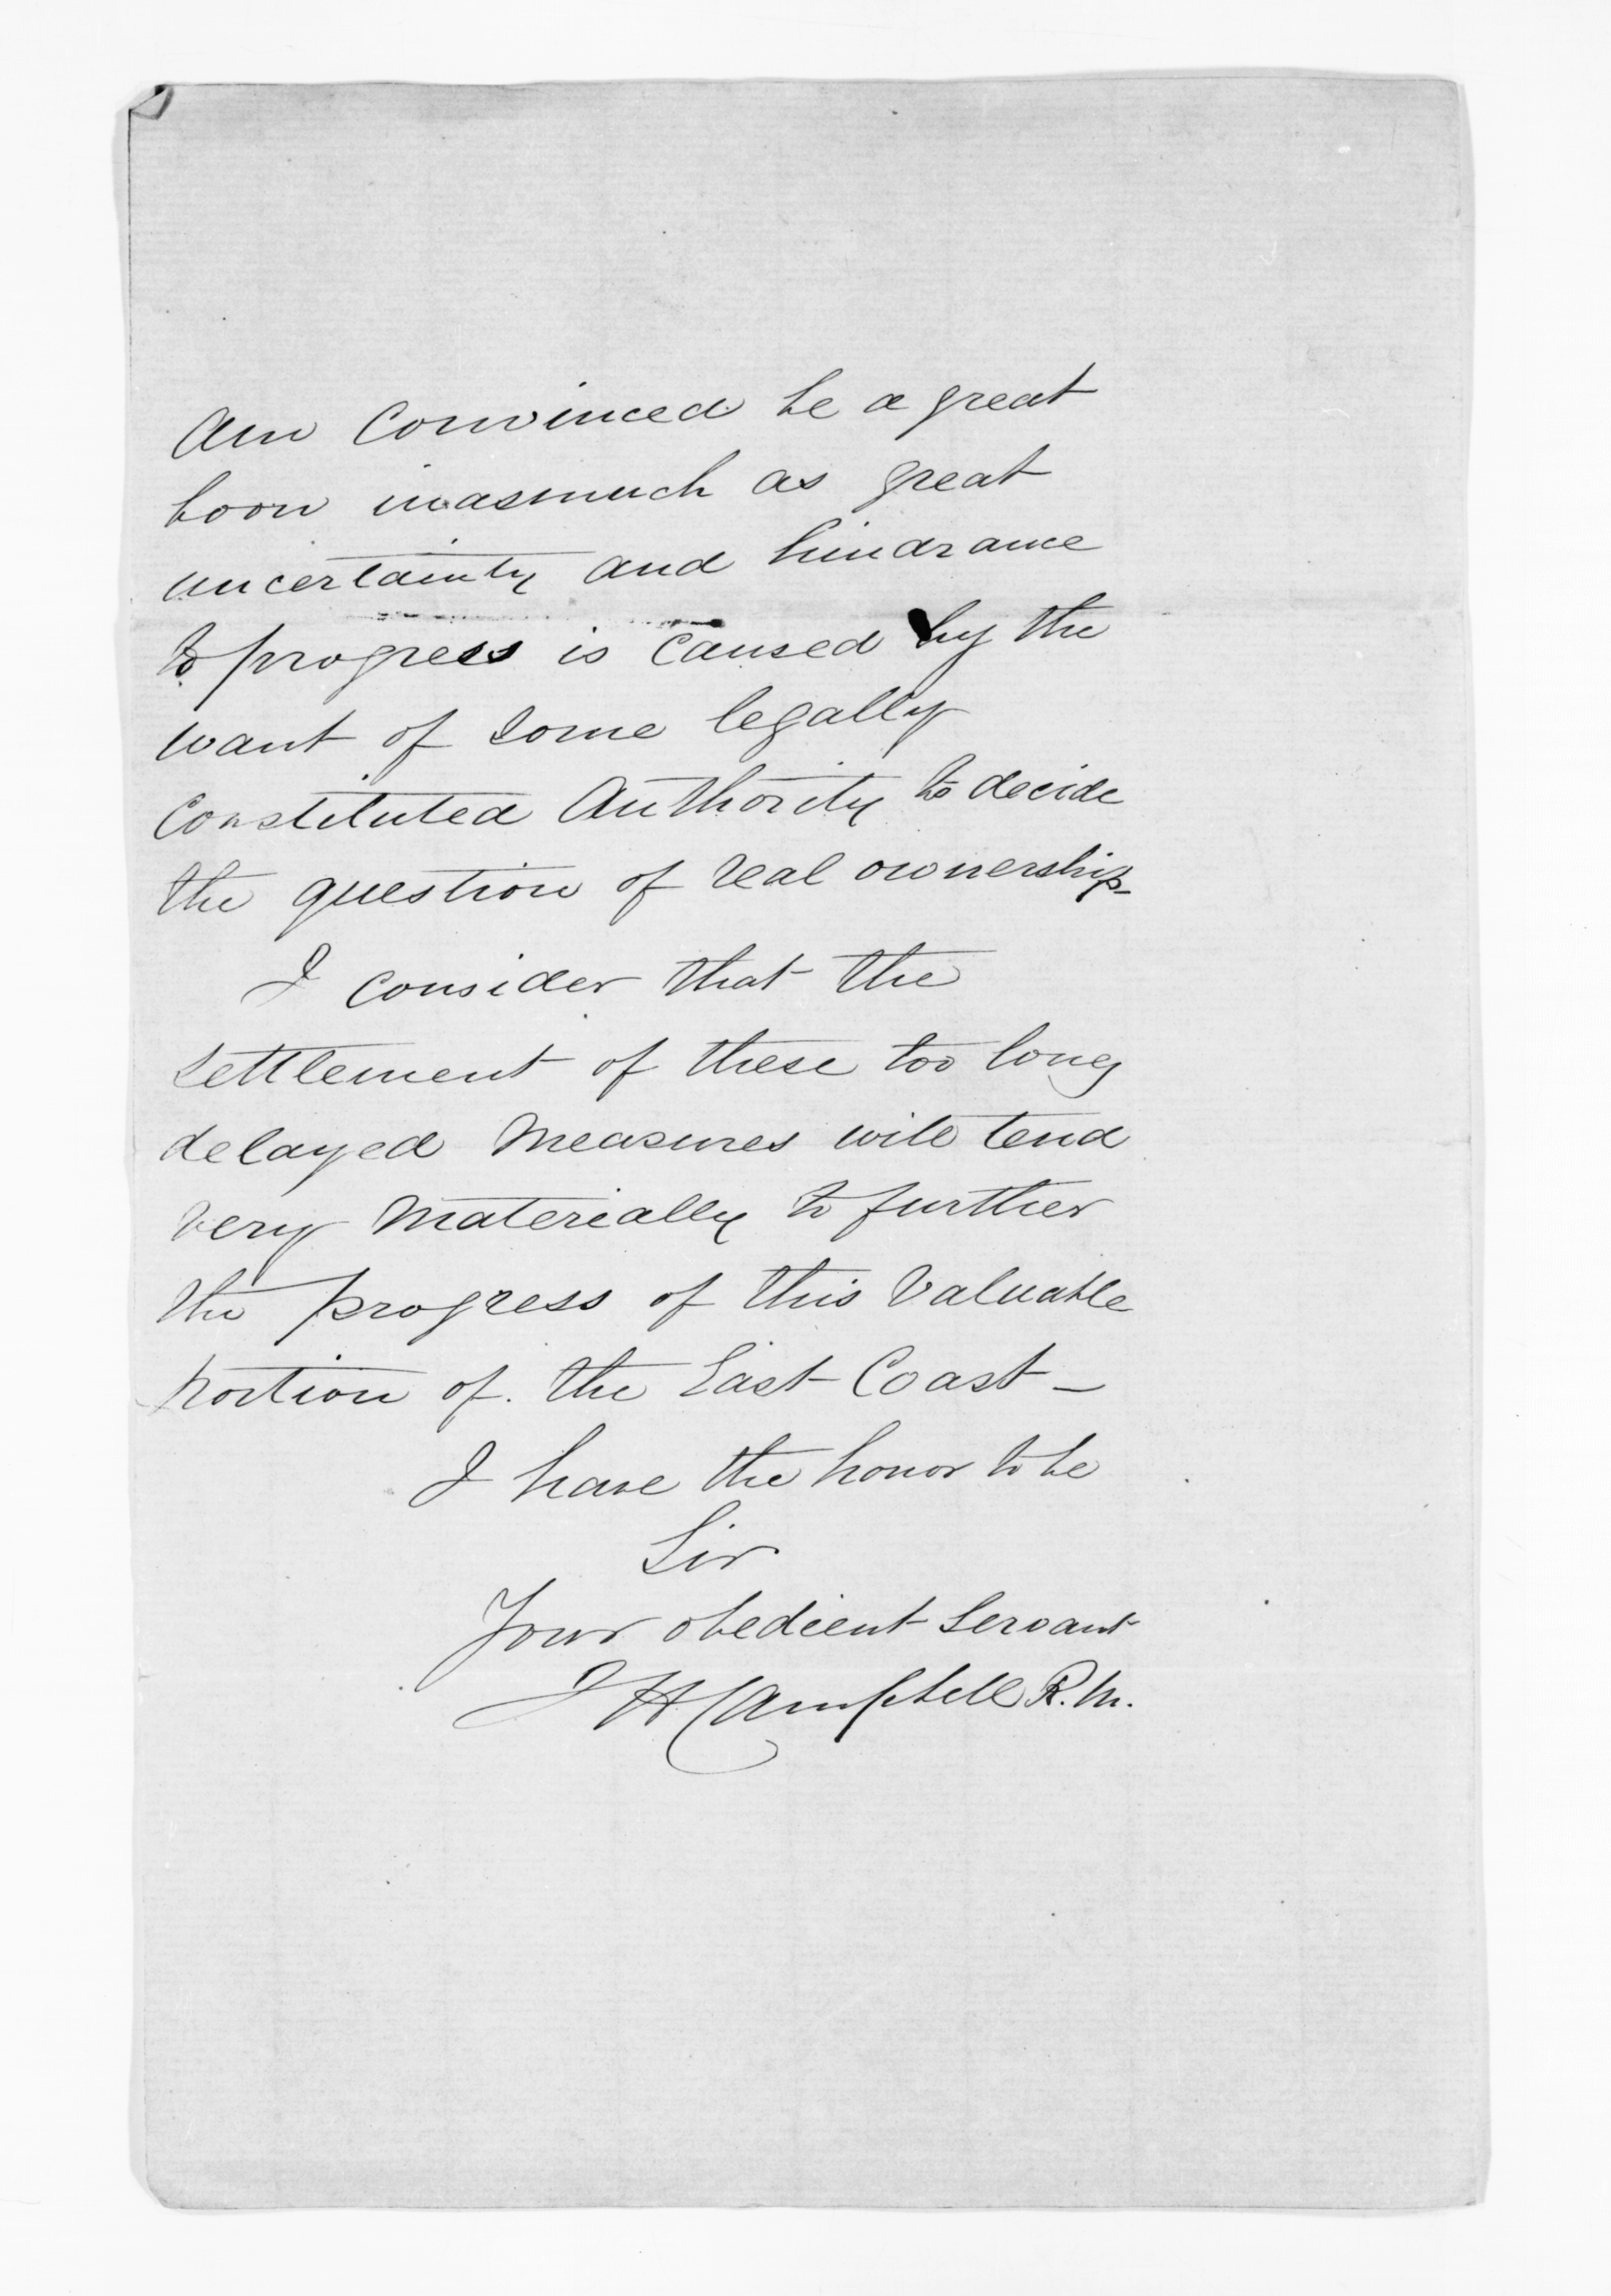 am convinced be a great
boon inasmuch as great
uncertainty and hindrance
to progress is caused by the
want of some legally
Constituted Authority to decide
the question of real ownership_
I consider that the
settlement of these too long
delayed measures will tend
very materially to further
the progress of this valuable
portion of the East Coast _
I have the honor to be
Sir
Your obedient Servant
J H Campbell R.M.